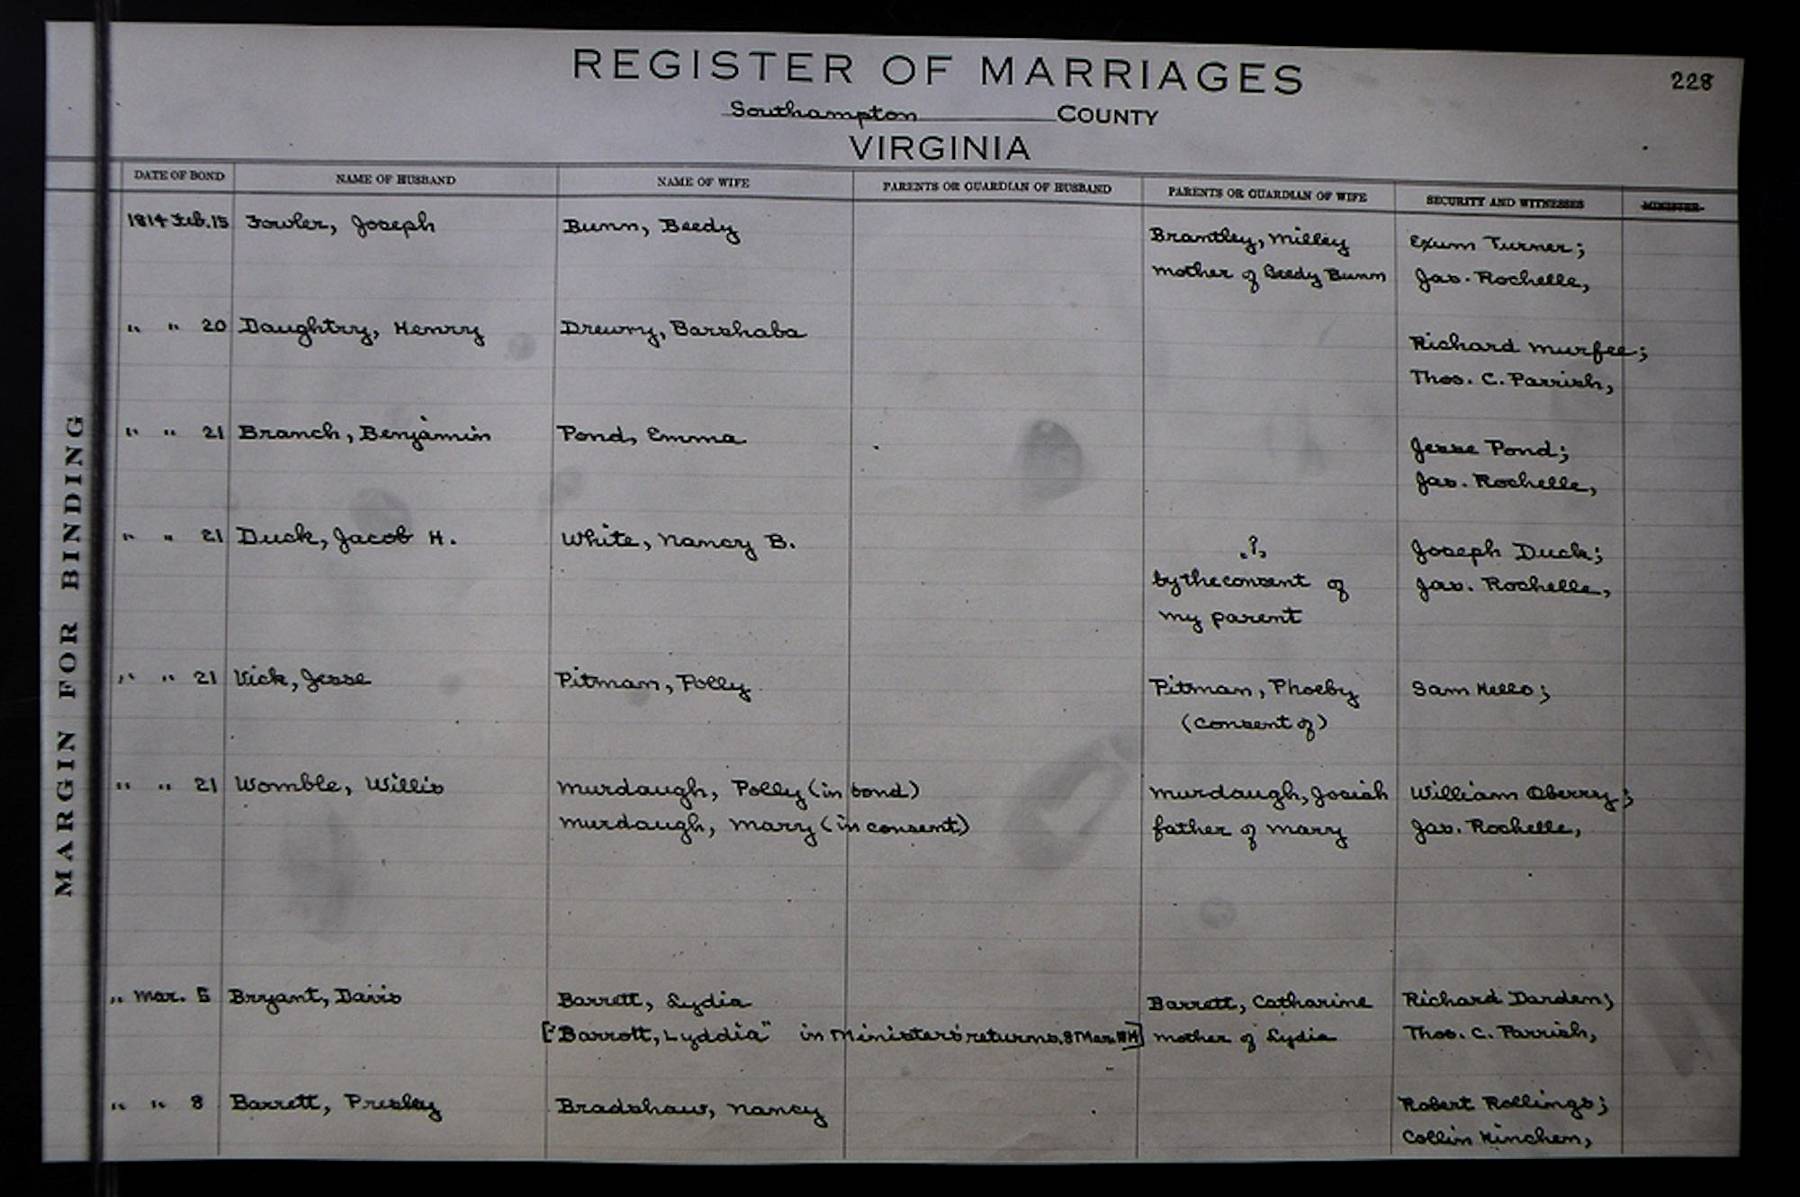 REGISTER OF MARRIAGES
228
Southampton COUNTY
VIRGINIA
DATE OF BOND NAME OF HUSBAND NAME OF WIFE PARENTS OR GUARDIAN OF HUSBAND PARENTS OR GUARDIAN OF WIFE SECURITY AND WITNESSES MINISTER
1814 Feb. 15 Fowler, Joseph Bunn, Beedy Brantley, Milley Exum Turner;
mother of Beedy Bunn Jas. Rochelle,
" " 20 Daughtry, Henry Drewry, Barshaba Richard Murfee;
Thos. C. Parrish,
" " 21 Branch, Benjamin Pond, Emma Jesse Pond;
Jas. Rochelle,
" " 21 Duck, Jacob H. White, Nancy B. ? Joseph Duck;
by the consent of Jas. Rochelle,
my parent
" " 21 Vick, Jesse Pitman, Polly Pitman, Phoeby Sam Kello;
(consent of)
" " 21 Womble, Willis Murdaugh, Polly (in bond) Murdaugh, Josiah William Oberry;
Murdaugh, Mary (in consent) father of Mary Jas. Rochelle,
" Mar. 5 Bryant, Davis Barrett, Lydia Barrett, Catharine Richard Darden;
["Barrott, Lyddia" in Ministers' returns, 8 Mar. 1814] mother of Lydia Thos. C. Parrish,
" " 8 Barrett, Presley Bradshaw, Nancy Robert Rollings;
Collin Kinchen,
MARGIN FOR BINDING